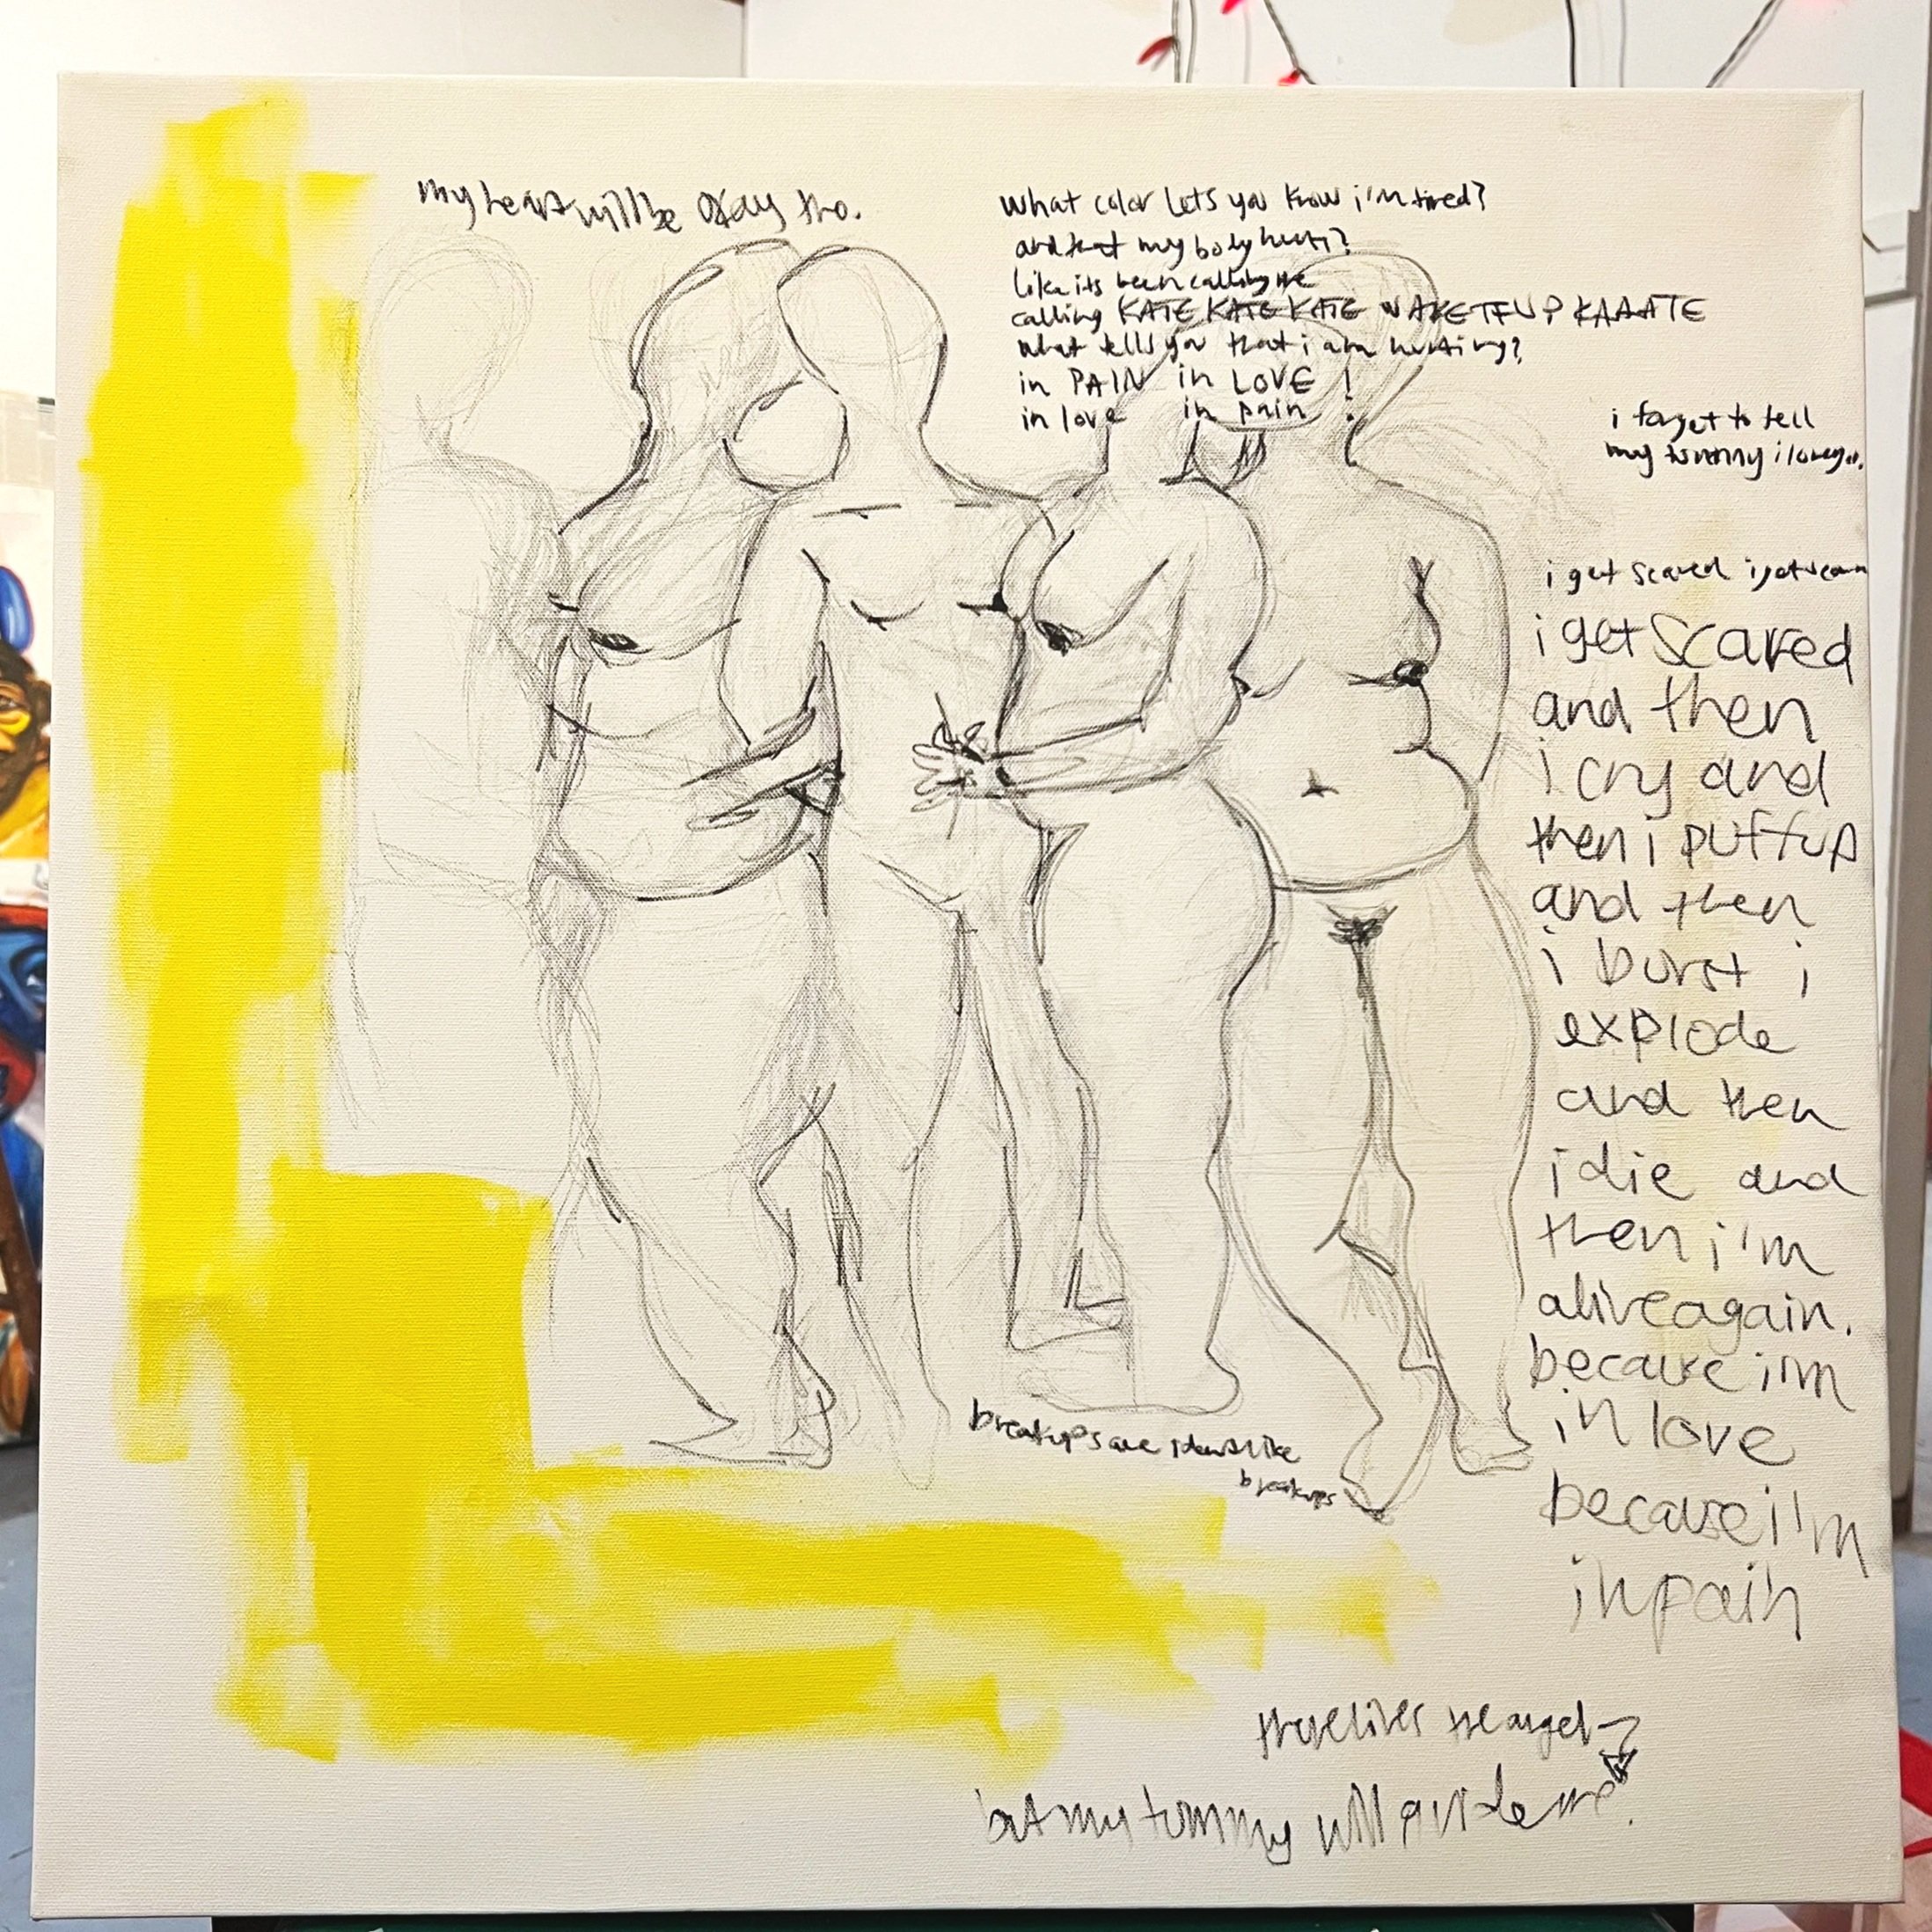 my heart will be okay tho.
what color lets you know i'm tired?
and that my body hurts?
like its been calling me
calling KATE KATE KATE WAKETFUP KAAATE
what tells you that i am hurting?
in PAIN in LOVE !
in love in pain !
i forget to tell
my tummy i love you.
i get scared i get
i get scared
and then
i cry and
then i puff up
and then
i burst i
explode
and then
i die and
then i'm
alive again.
because i'm
in love
because i'm
in pain
breakups are like
breakups
there lives the angel
but my tummy will guide me.